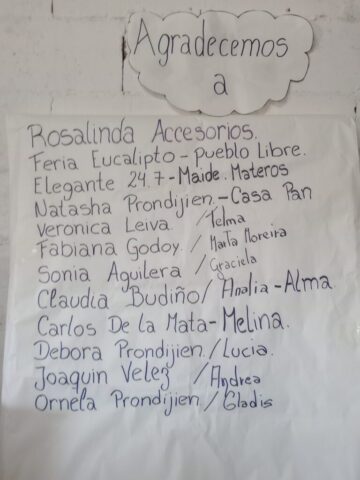 Agradecemos
a
Rosalinda Accesorios.
Feria Eucalipto - Pueblo Libre.
Elegante 24.7 - Maide. Materos
Natasha Prondijien. - Casa Pan
Veronica Leiva. / Telma
Fabiana Godoy / Marta Moreira
Sonia Aguilera / Graciela
Claudia Budiño / Analia - Alma
Carlos De la Mata - Melina.
Debora Prondijien. / Lucia.
Joaquin Velez / Andrea
Ornela Prondijien / Gladis